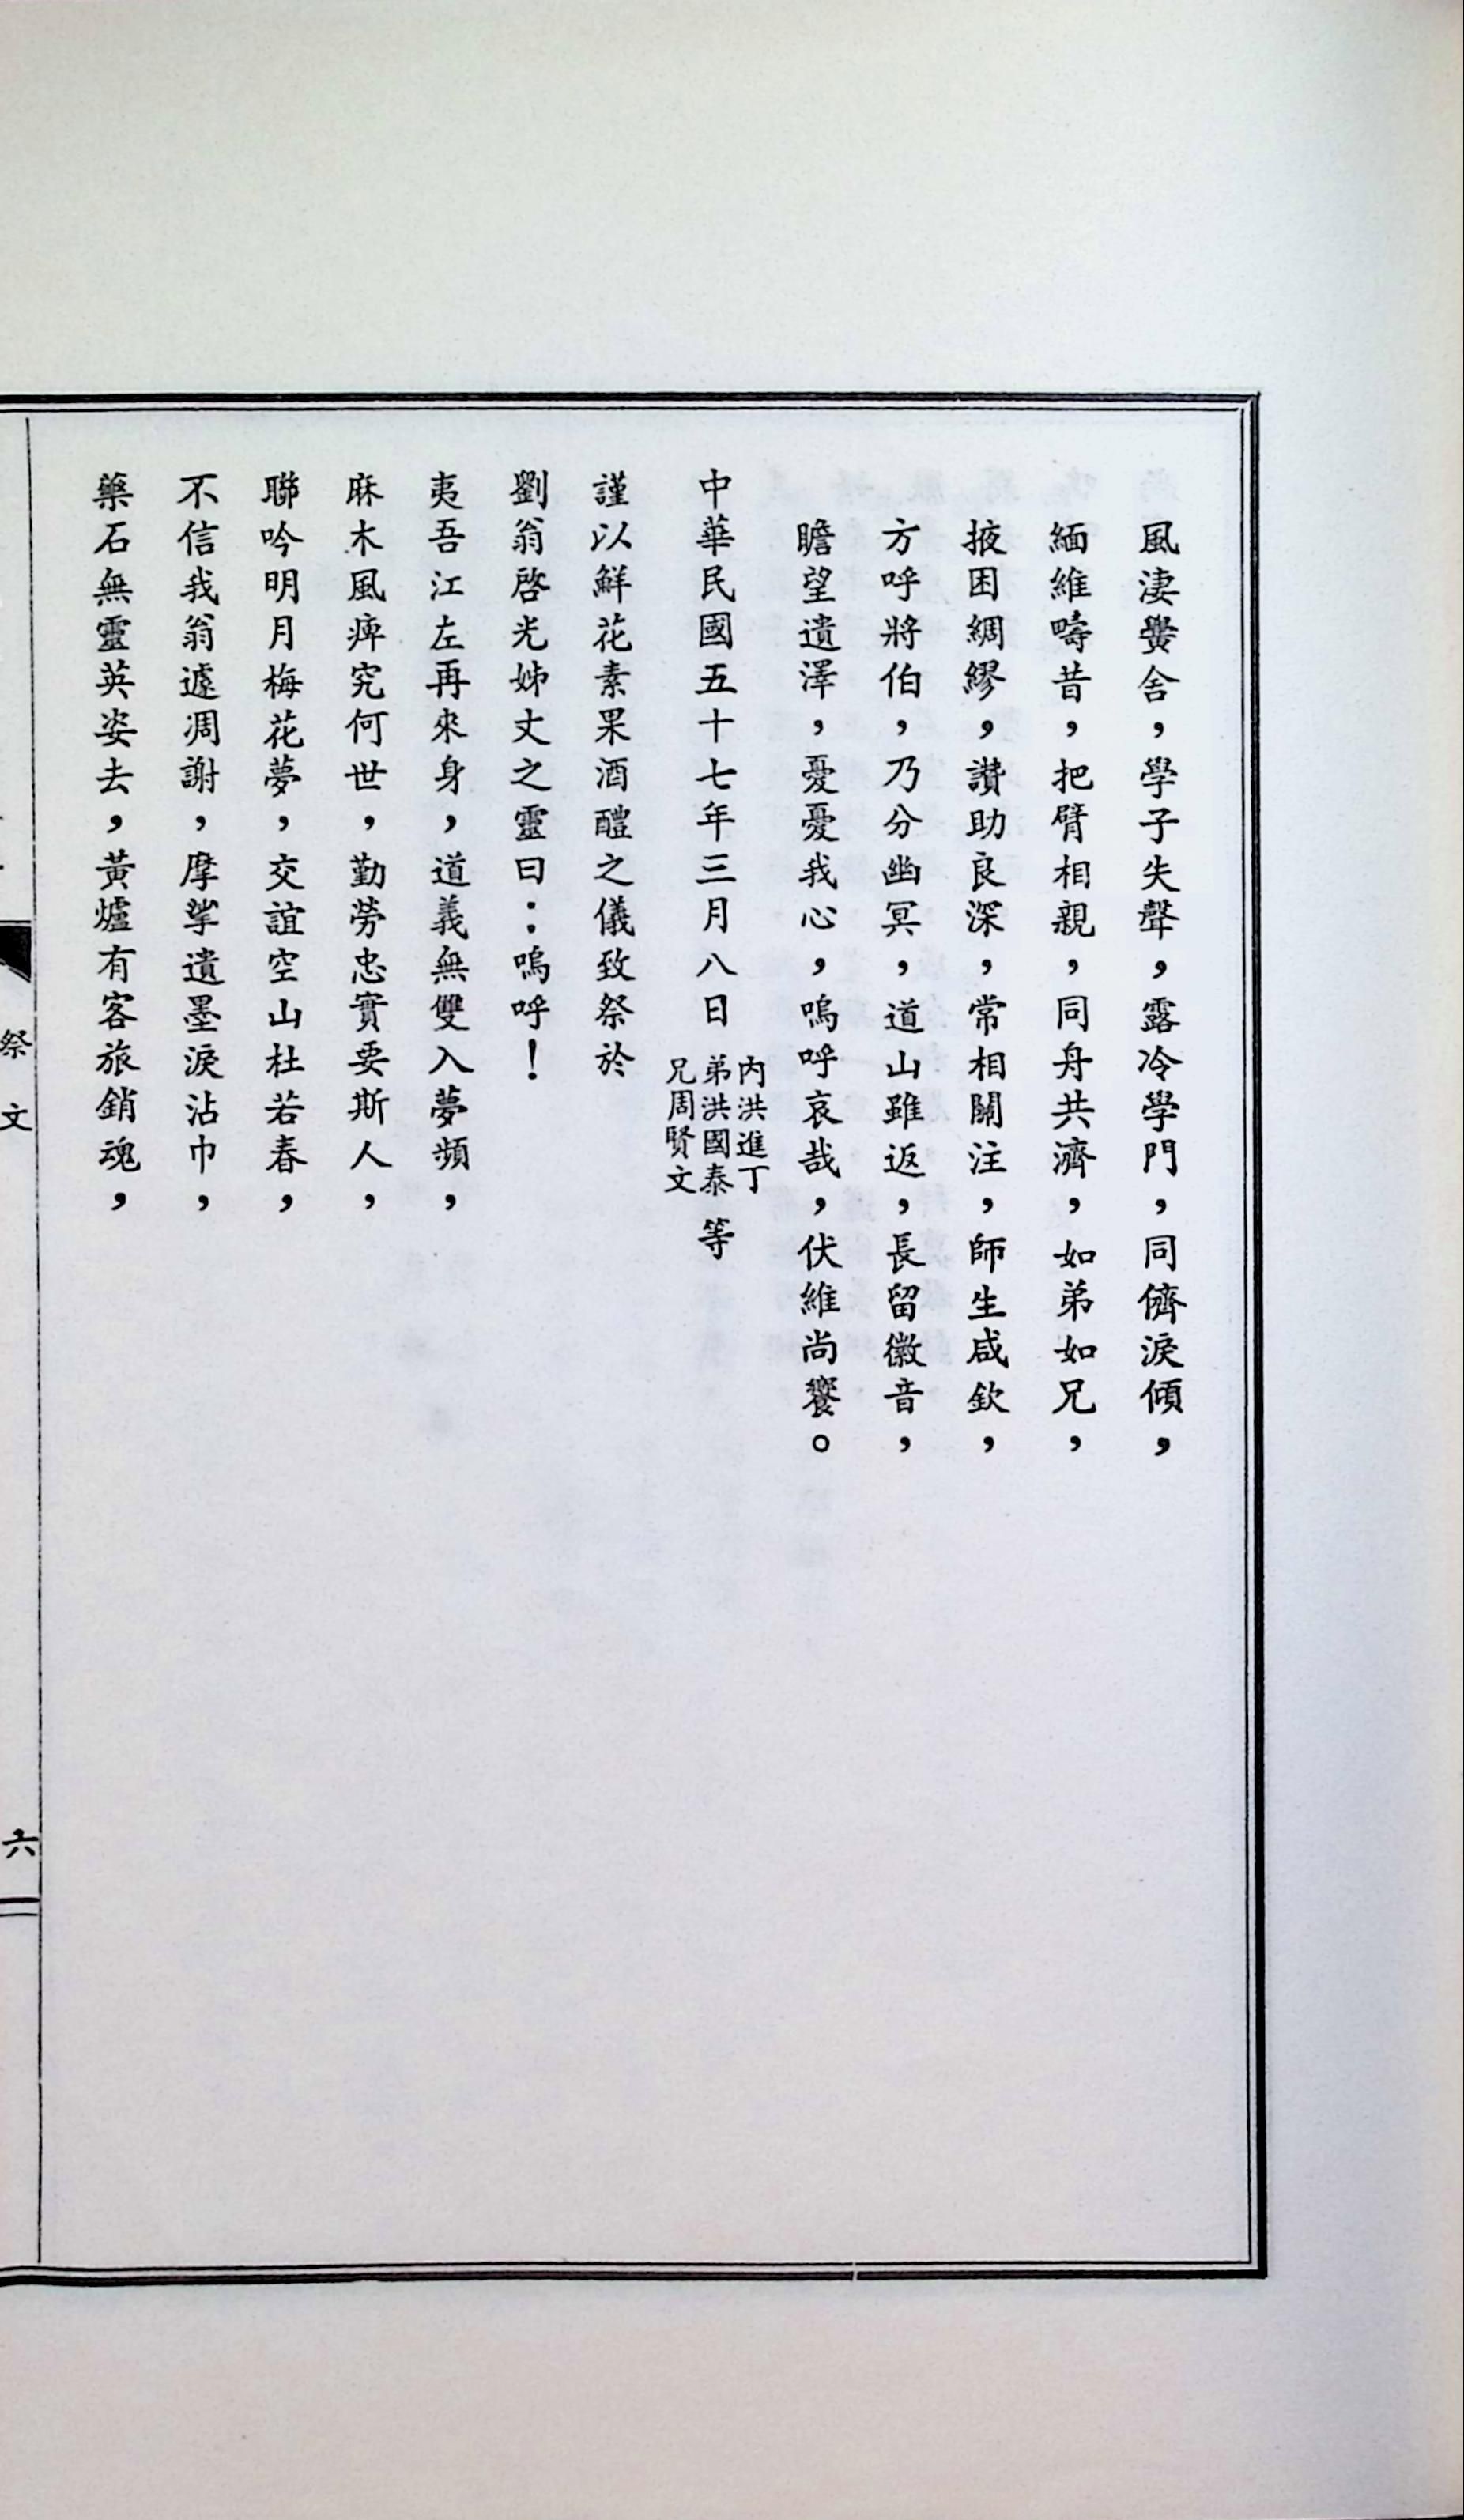 風淒黌舍，學子失聲，露冷學門，同儕淚傾，
緬維疇昔，把臂相親，同舟共濟，如弟如兄，
掖困綢繆，讚助良深，常相關注，師生咸欽，
方呼將伯，乃分幽冥，道山雖返，長留徽音，
瞻望遺澤，憂憂我心，嗚呼哀哉，伏維尚饗。
中華民國五十七年三月八日
內洪進丁
弟洪國泰等
兄周賢文
謹以鮮花素果酒醴之儀致祭於
劉翁啓光姊丈之靈曰：嗚呼！
夷吾江左再來身，道義無雙入夢頻，
麻木風痺究何世，勤勞忠實要斯人，
聯吟明月梅花夢，交誼空山杜若春，
不信我翁遽凋謝，摩挲遺墨淚沾巾，
藥石無靈英姿去，黃爐有客旅銷魂，
祭文
六